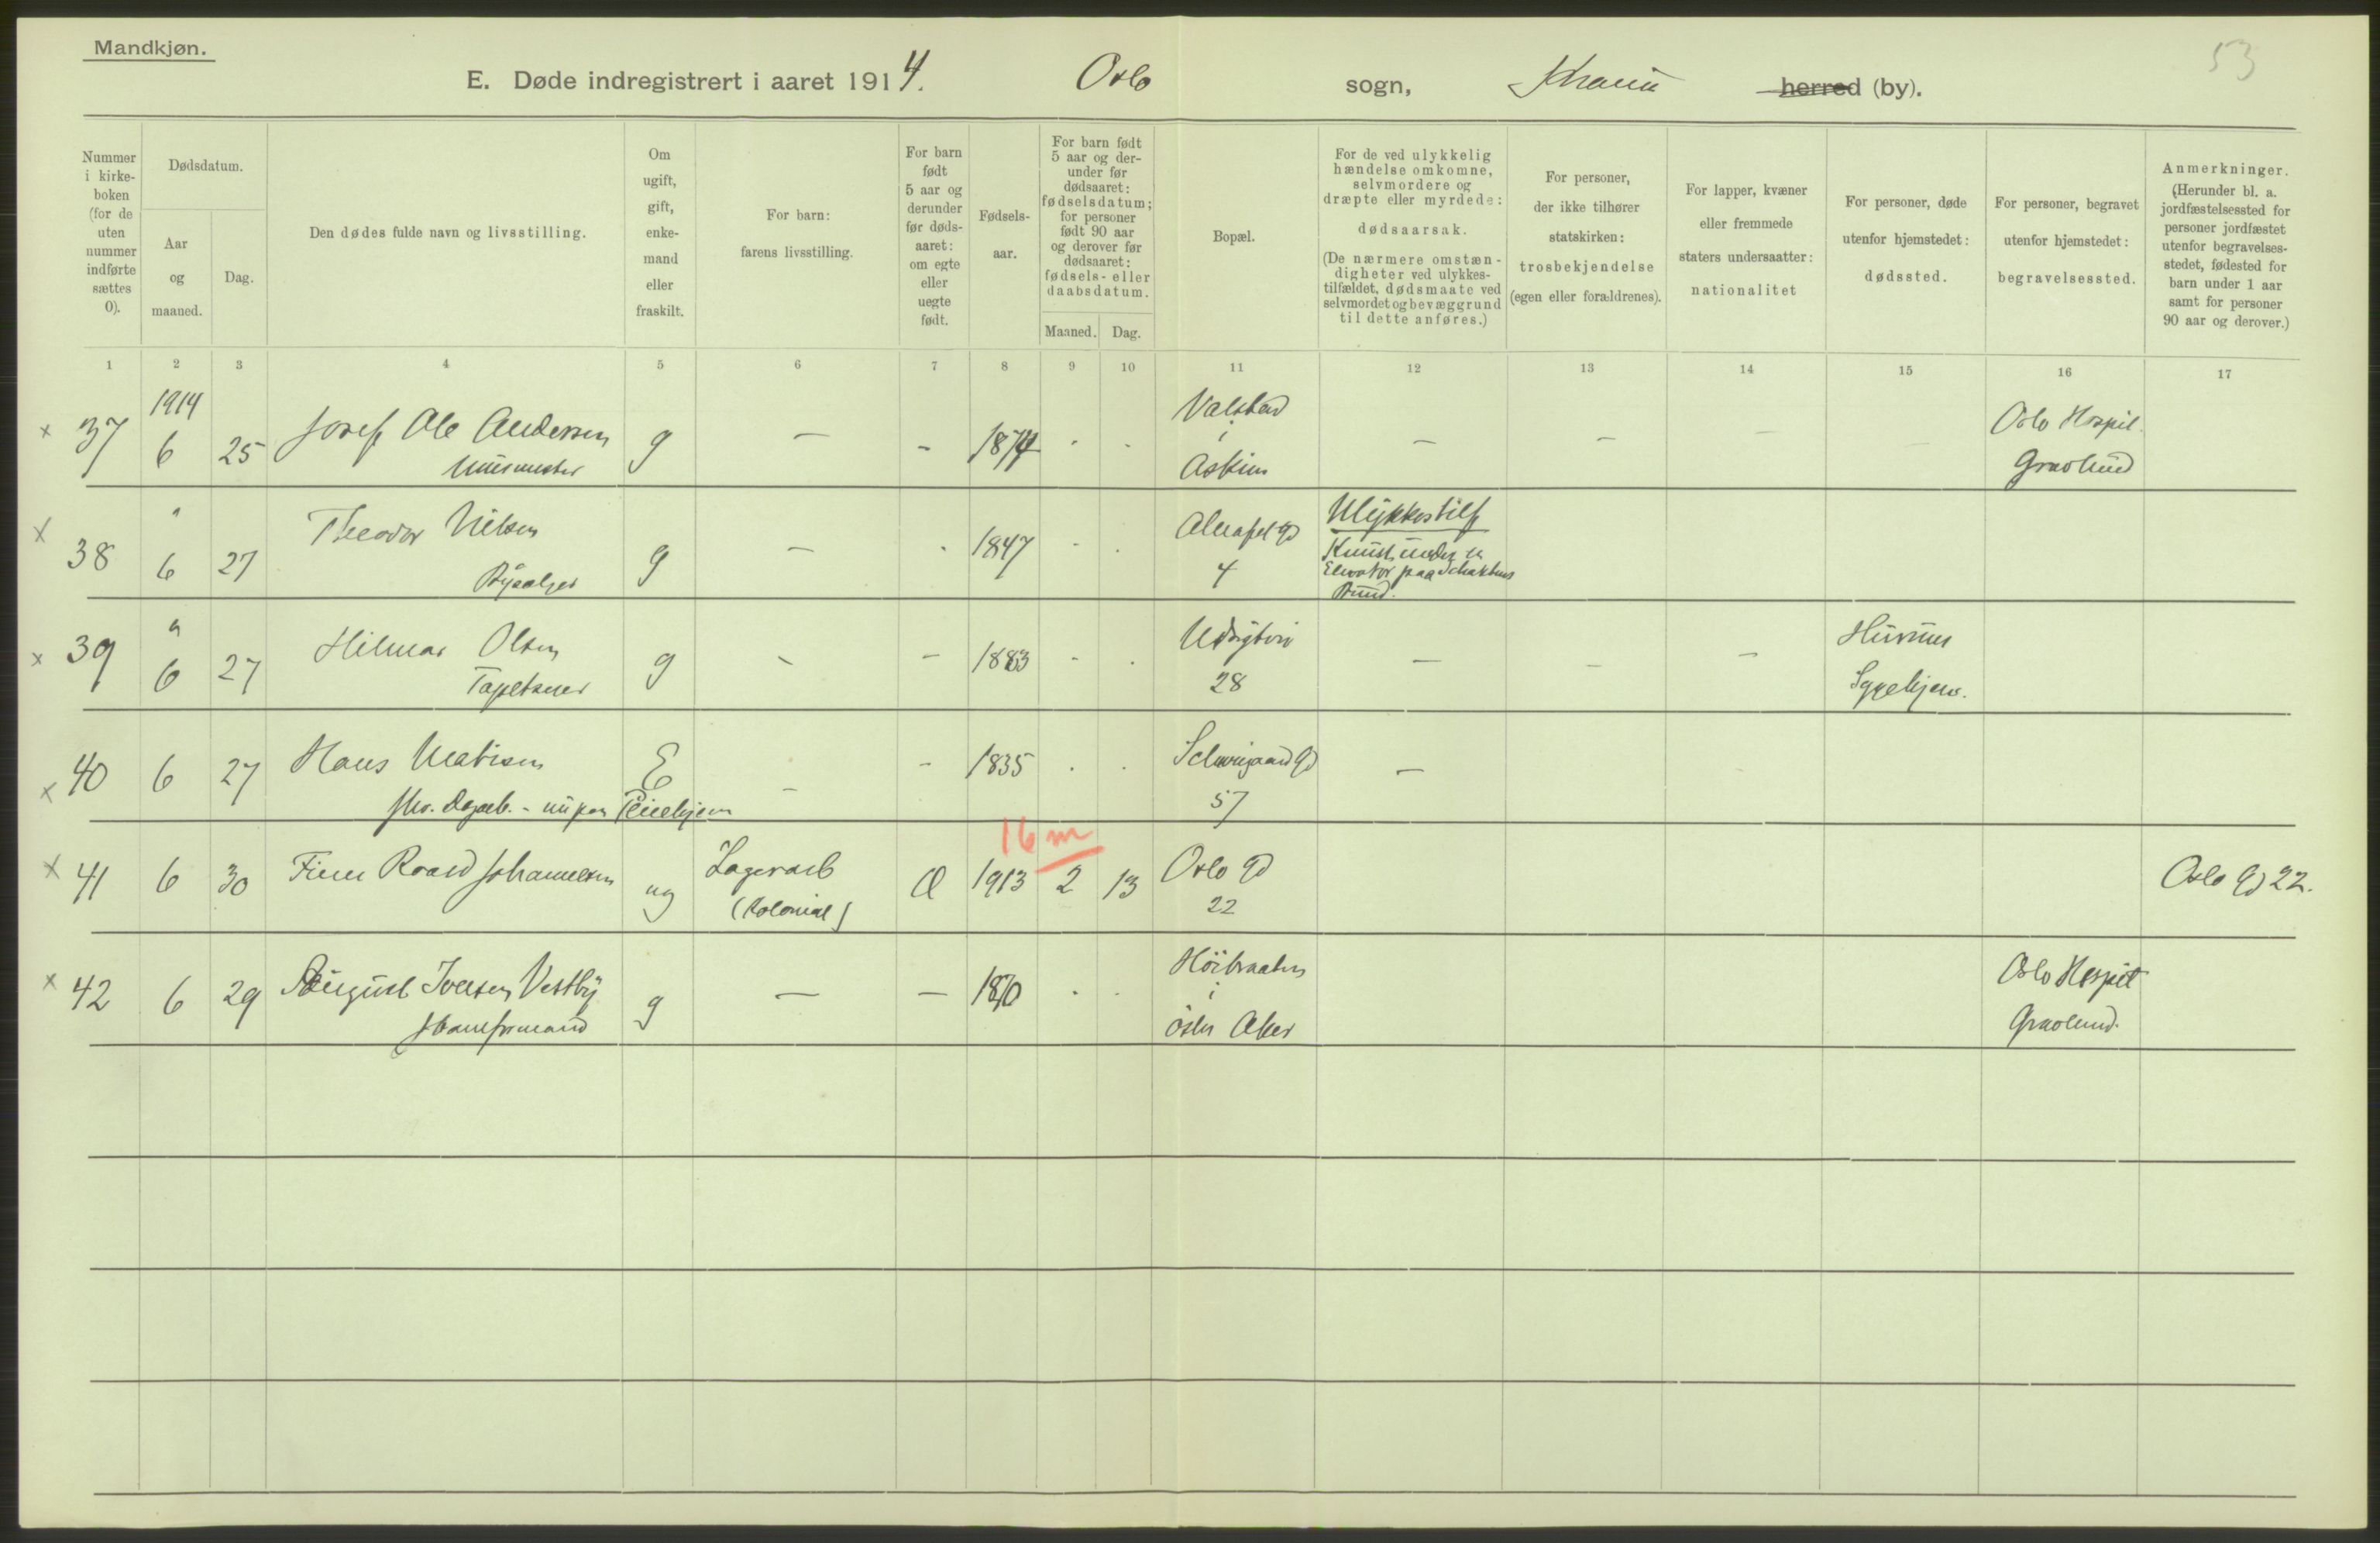 Mandkjøn.
53
E. Døde indregistrert i aaret 1914. Oslo sogn, Kristiania herred (by).
Nummer i kirkeboken (for de uten nummer indførte sættes 0).
Dødsdatum.
Aar og maaned.
Dag.
Den dødes fulde navn og livsstilling.
Om ugift, gift, enkemand eller fraskilt.
For barn: farens livsstilling.
For barn født 5 aar og derunder før dødsaaret: om egte eller uegte født.
Fødselsaar.
For barn født 5 aar og derunder før dødsaaret: fødselsdatum; for personer født 90 aar og derover før dødsaaret: fødsels- eller daabsdatum.
Maaned. Dag.
Bopæl.
For de ved ulykkelig hændelse omkomne, selvmordere og dræpte eller myrdede: dødsaarsak. (De nærmere omstændigheter ved ulykkestilfældet, dødsmaate ved selvmordet og bevæggrund til dette anføres.)
For personer, der ikke tilhører statskirken: trosbekjendelse (egen eller forældrenes).
For lapper, kvæner eller fremmede staters undersaatter: nationalitet
For personer, døde utenfor hjemstedet: dødssted.
For personer, begravet utenfor hjemstedet: begravelsessted.
Anmerkninger. (Herunder bl. a. jordfæstelsessted for personer jordfæstet utenfor begravelsesstedet, fødested for barn under 1 aar samt for personer 90 aar og derover.)
1 2 3 4 5 6 7 8 9 10 11 12 13 14 15 16 17
x 37 1914 6 25 Josef Ole Andersen
Murmester g — - 1874 - - Valstad i Askim — — — — Oslo Hospit. Gravlund
x 38 " 6 27 Theodor Nilsen
g — - 1847 - - Alnafet Gd 4 Ulykkestilf
Knust under en
Elevator paa Schaktens
Bund.
x 39 " 6 27 Hilmar Olsen
Tapetserer g - - 1883 - - Utsigtvei 28 — — — Hurum Sygehjem.
x 40 6 27 Hans Matisen
fhv. Dagarb. - nu paa Pleiehjem E - - 1835 - - Schweigaard Gd 57 —
16 m
x 41 6 30 Finn Roald Johannesen ug Lagerarb (Kolonial) Æ 1913 2 13 Oslo Gd 22 Oslo Gd 22.
x 42 6 29 August Iversen Vestby
g — — 1870 - - Höibraaten i östre Aker Oslo Hospit Gravlund.